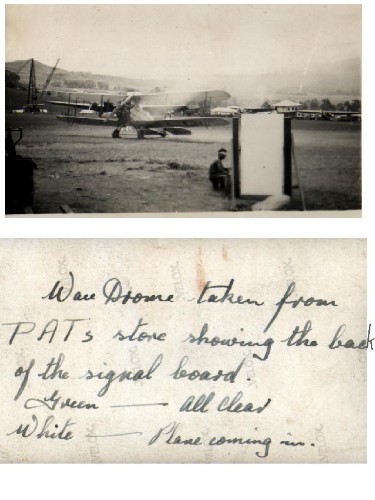 Wau Drome taken from
PATs store showing the back
of the signal board.
Green — All Clear
White — Plane coming in.
VELOX